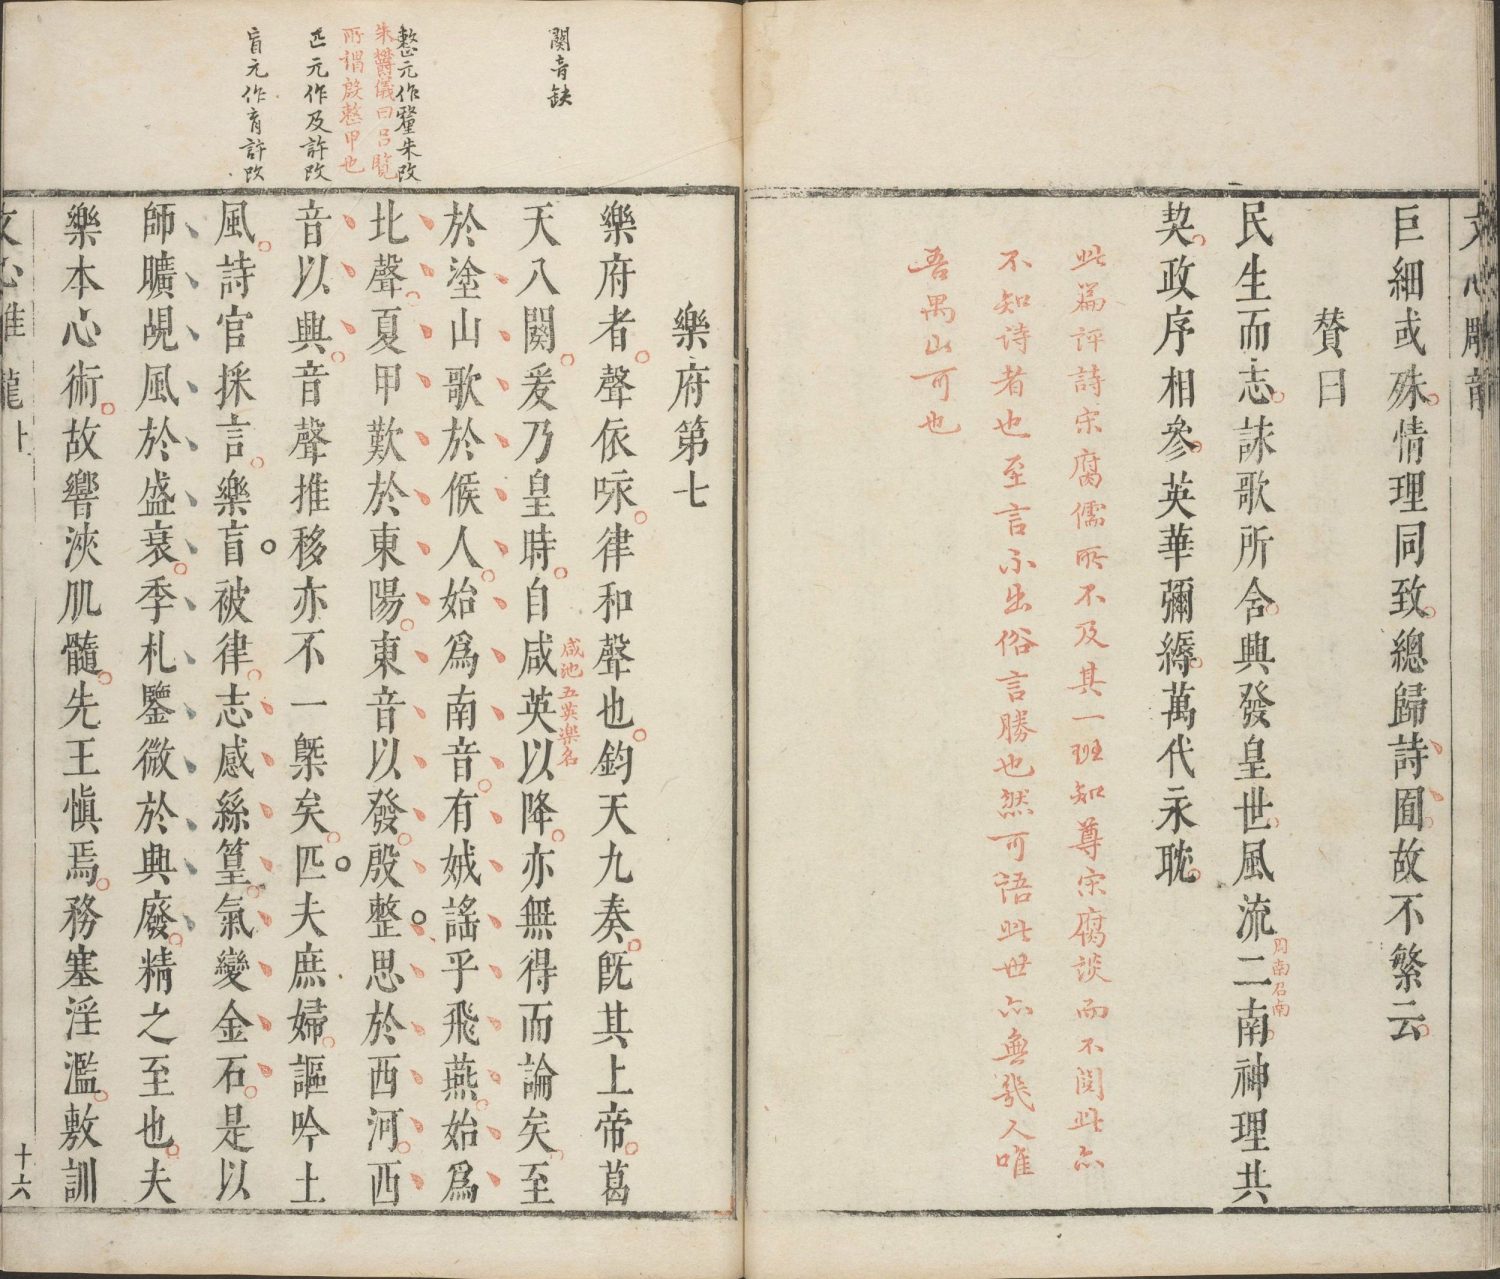 巨細或殊情理同致總歸詩囿故不繁云
贊曰
民生而志詠歌所含興發皇世風流二南神理共
周南召南
契政序相參英華彌縟萬代永耽
此篇評詩宋腐儒所不及其一班知尊宋腐談而不閱此亦
不知詩者也至言不出俗言勝也然可語此世亦無幾人唯
吾禺山可也
樂府第七
樂府者聲依咏律和聲也鈞天九奏旣其上帝葛
天八闋爰乃皇時自咸英以降亦無得而論矣至
咸池五英樂名
於塗山歌於候人始爲南音有娀謠乎飛燕始爲
北聲夏甲歎於東陽東音以發殷整思於西河西
音以興音聲推移亦不一槩矣匹夫庶婦謳吟土
風詩官採言樂盲被律志感絲篁氣變金石是以
師曠覘風於盛衰季札鑒微於興廢精之至也夫
樂本心術故響浹肌髓先王愼焉務塞淫濫敷訓
闋音缺
整元作釐朱改
朱欝儀曰呂覽
所謂殷整甲也
匹元作及許改
盲元作育許改
十六